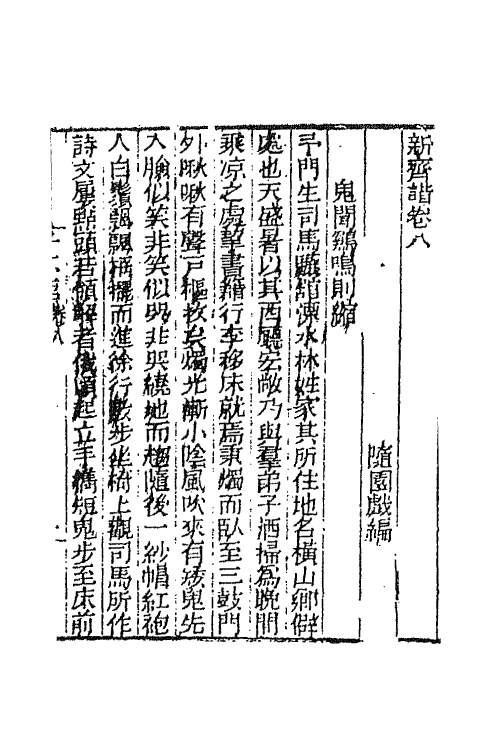 新齊諧卷八
隨園戲編
鬼聞鷄鳴則縮
予門生司馬驤館溧水林姓家其所住地名橫山鄉僻
處也天盛暑以其西廳宏敞乃與羣弟子洒掃為晚間
乘凉之處挈書籍行李移床就焉秉燭而臥至三鼓門
外啾啾有聲戶樞拔矣燭光漸小陰風吹來有矮鬼先
入臉似笑非笑似哭非哭繞地而趨隨後一紗帽紅袍
人白鬚飄飄搖擺而進徐行數步坐椅上觀司馬所作
詩文屢點頭若領解者俄頃起立手攜短鬼步至床前